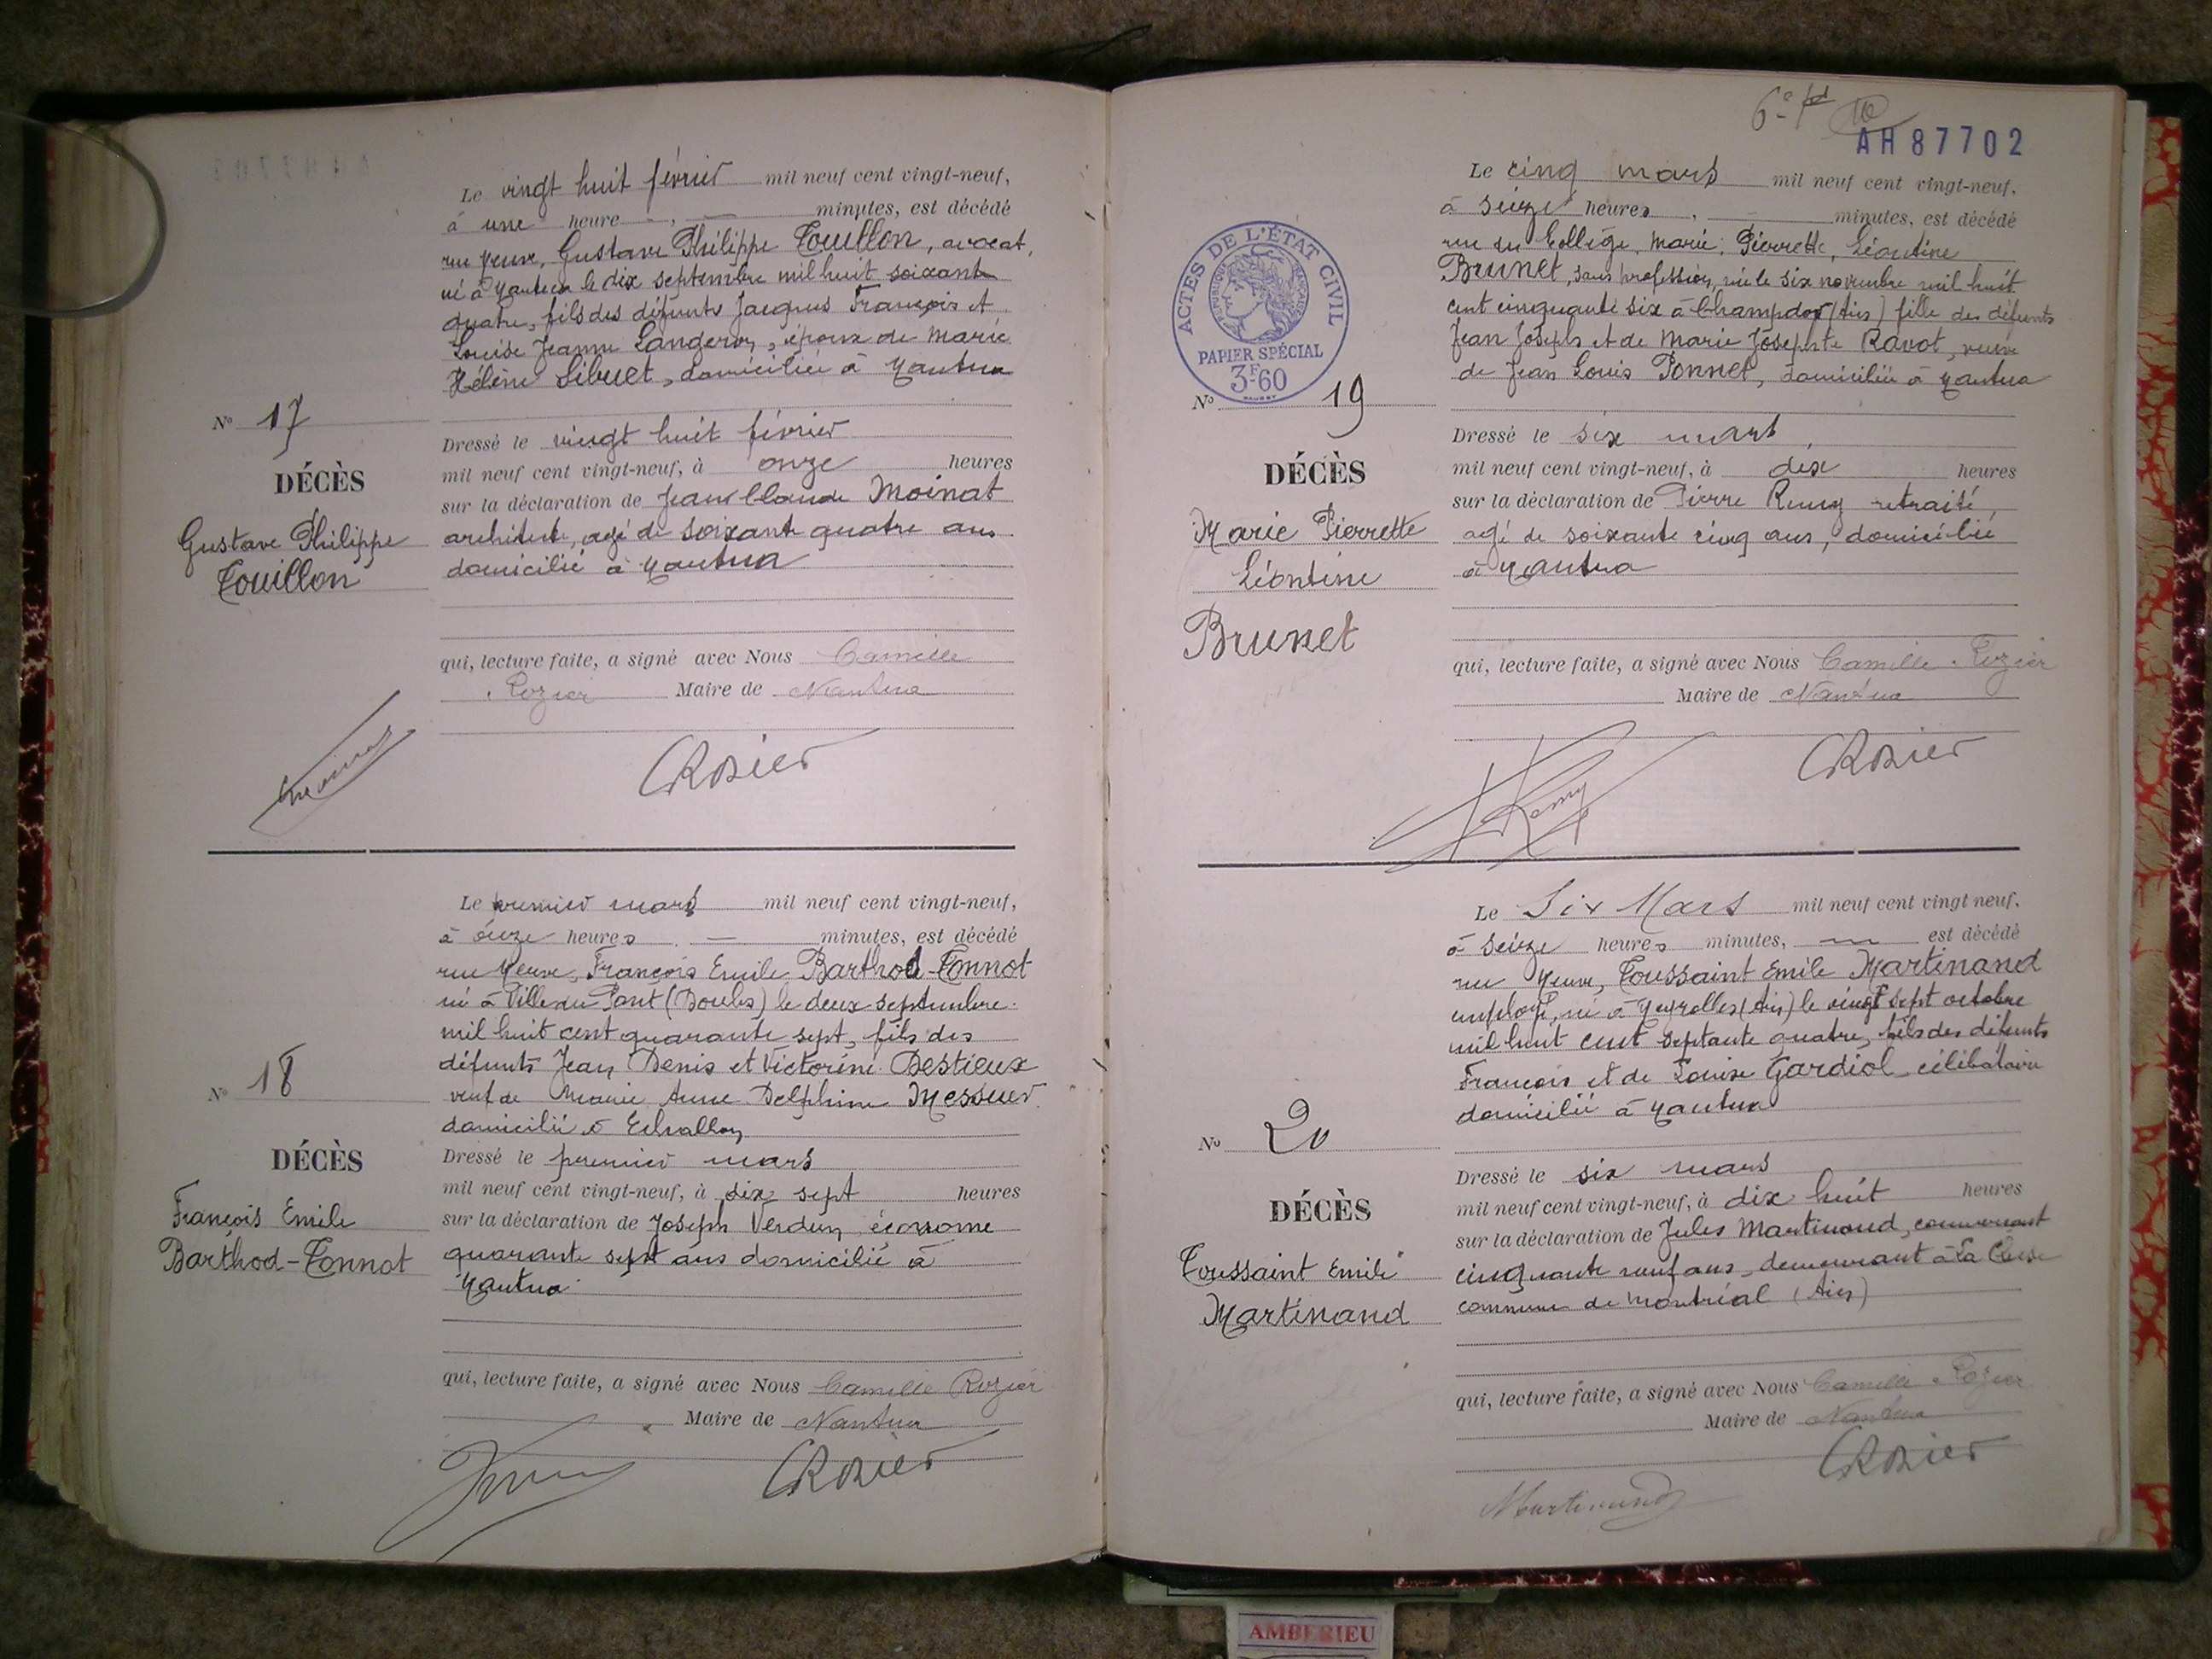 Le vingt huit février mil neuf cent vingt-neuf,
à une heure minutes, est décédé
rue Neuve, Gustave Philippe Touillon, avocat,
né à Nantua le dix septembre mil huit soixante
quatre, fils des défunts Jacques François et
Louise Jeanne Langeron, époux de Marie
Hélène Sibuet, domicilié à Nantua
N° 17
DÉCÈS
Gustave Philippe
Touillon
Dressé le vingt huit février
mil neuf cent vingt-neuf, à onze heures
sur la déclaration de Jean Claude Moinat
architecte, agé de soixante quatre ans
domicilié à Nantua
qui, lecture faite, a signé avec Nous Camille
Rozier Maire de Nantua
Moinat
CRozier
Le premier mars mil neuf cent vingt-neuf,
à onze heures minutes, est décédé
rue Neuve, François Emile Barthod-Tonnot
né à Ville du Pont (Doubs) le deux septembre
mil huit cent quarante sept, fils des
défunts Jean Denis et Victorine Destieux
veuf de Marie Anne Delphine Messner
domicilié à Echallon
N° 18
DÉCÈS
François Emile
Barthod-Tonnot
Dressé le premier mars
mil neuf cent vingt-neuf, à dix sept heures
sur la déclaration de Joseph Verdun, économe
quarante sept ans domicilié à
Nantua
qui, lecture faite, a signé avec Nous Camille Rozier
Maire de Nantua
CRozier
AH87702
ACTES DE L'ÉTAT CIVIL
RÉPUBLIQUE FRANÇAISE
PAPIER SPÉCIAL
3F60
Le cinq mars mil neuf cent vingt-neuf,
à seize heures, minutes, est décédé
rue du Collège, Marie, Pierrette, Léontine
Brunet, sans profession, née le six novembre mil huit
cent cinquante six à Champdor (Ain) fille des défunts
Jean Joseph et de Marie Josephte Ravot, veuve
de Jean Louis Ponnet, domiciliée à Nantua
N° 19
DÉCÈS
Marie Pierrette
Léontine
Brunet
Dressé le six mars,
mil neuf cent vingt-neuf, à dix heures
sur la déclaration de Pierre Remy retraité,
agé de soixante cinq ans, domicilié
à Nantua
qui, lecture faite, a signé avec Nous Camille Rozier
Maire de Nantua
Remy
CRozier
Le Six Mars mil neuf cent vingt neuf,
à seize heures minutes, est décédé
rue Neuve, Toussaint Emile Martinand
employé, né à Neyrolles (Ain) le vingt sept octobre
mil huit cent septante quatre, fils des défunts
François et de Louise Gardiol célibataire
domicilié à Nantua
N° 20
DÉCÈS
Toussaint Emile
Martinand
Dressé le six mars
mil neuf cent vingt-neuf, à dix huit heures
sur la déclaration de Jules Martinand,
cinquante neuf ans, demeurant à La Cluse
commune de Montréal (Ain)
qui, lecture faite, a signé avec Nous Camille Rozier
Maire de Nantua
CRozier
Martinand
AMBERIEU